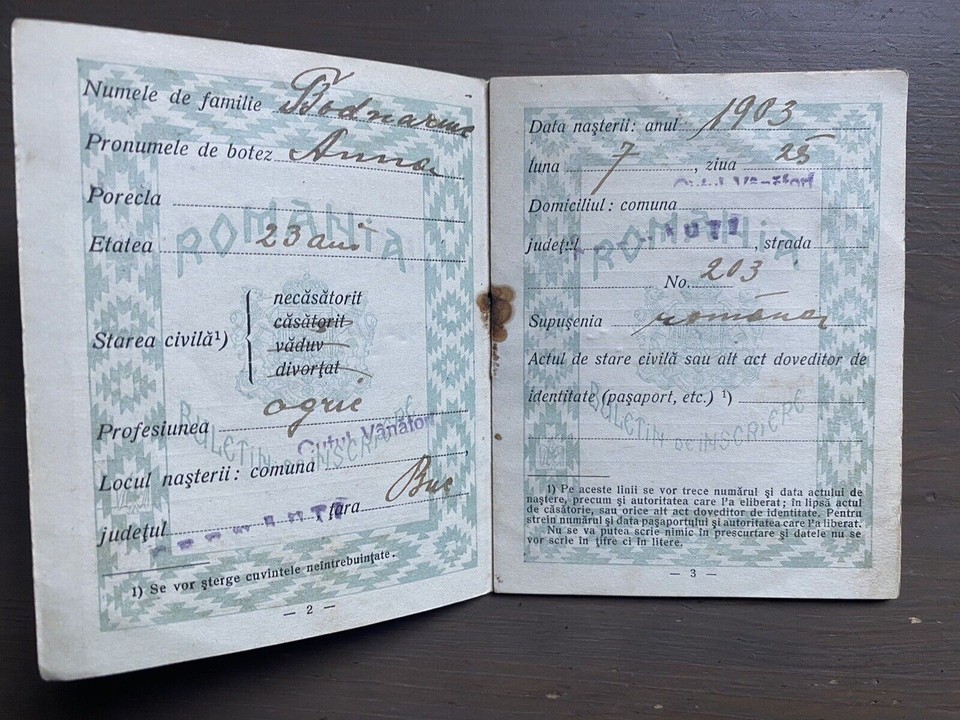 Numele de familie Bodnariuc
Pronumele de botez Anna
Porecla
Etatea 23 ani
ROMÂNIA
necăsătorit
căsătorit
Starea civilă¹)
văduv
divorţat
Profesiunea agric
BULETIN DE ÎNSCRIERE
Locul naşterii: comuna Cutul Vânători
judeţul ţara Buc
1) Se vor şterge cuvintele neîntrebuinţate.
— 2 —
Data naşterii: anul 1903
luna 7, ziua 25
Domiciliul: comuna
ROMÂNIA
judeţul, strada
No. 203
Supuşenia română
Actul de stare civilă sau alt act doveditor de
identitate (paşaport, etc.) ¹)
BULETIN DE ÎNSCRIERE
1) Pe aceste linii se vor trece numărul şi data actului de
naştere, precum şi autoritatea care l'a eliberat; în lipsă actul
de căsătorie, sau orice alt act doveditor de identitate. Pentru
strein numărul şi data paşaportului şi autoritatea care l'a liberat.
Nu se va putea scrie nimic în prescurtare şi datele nu se
vor scrie în ţifre ci în litere.
— 3 —